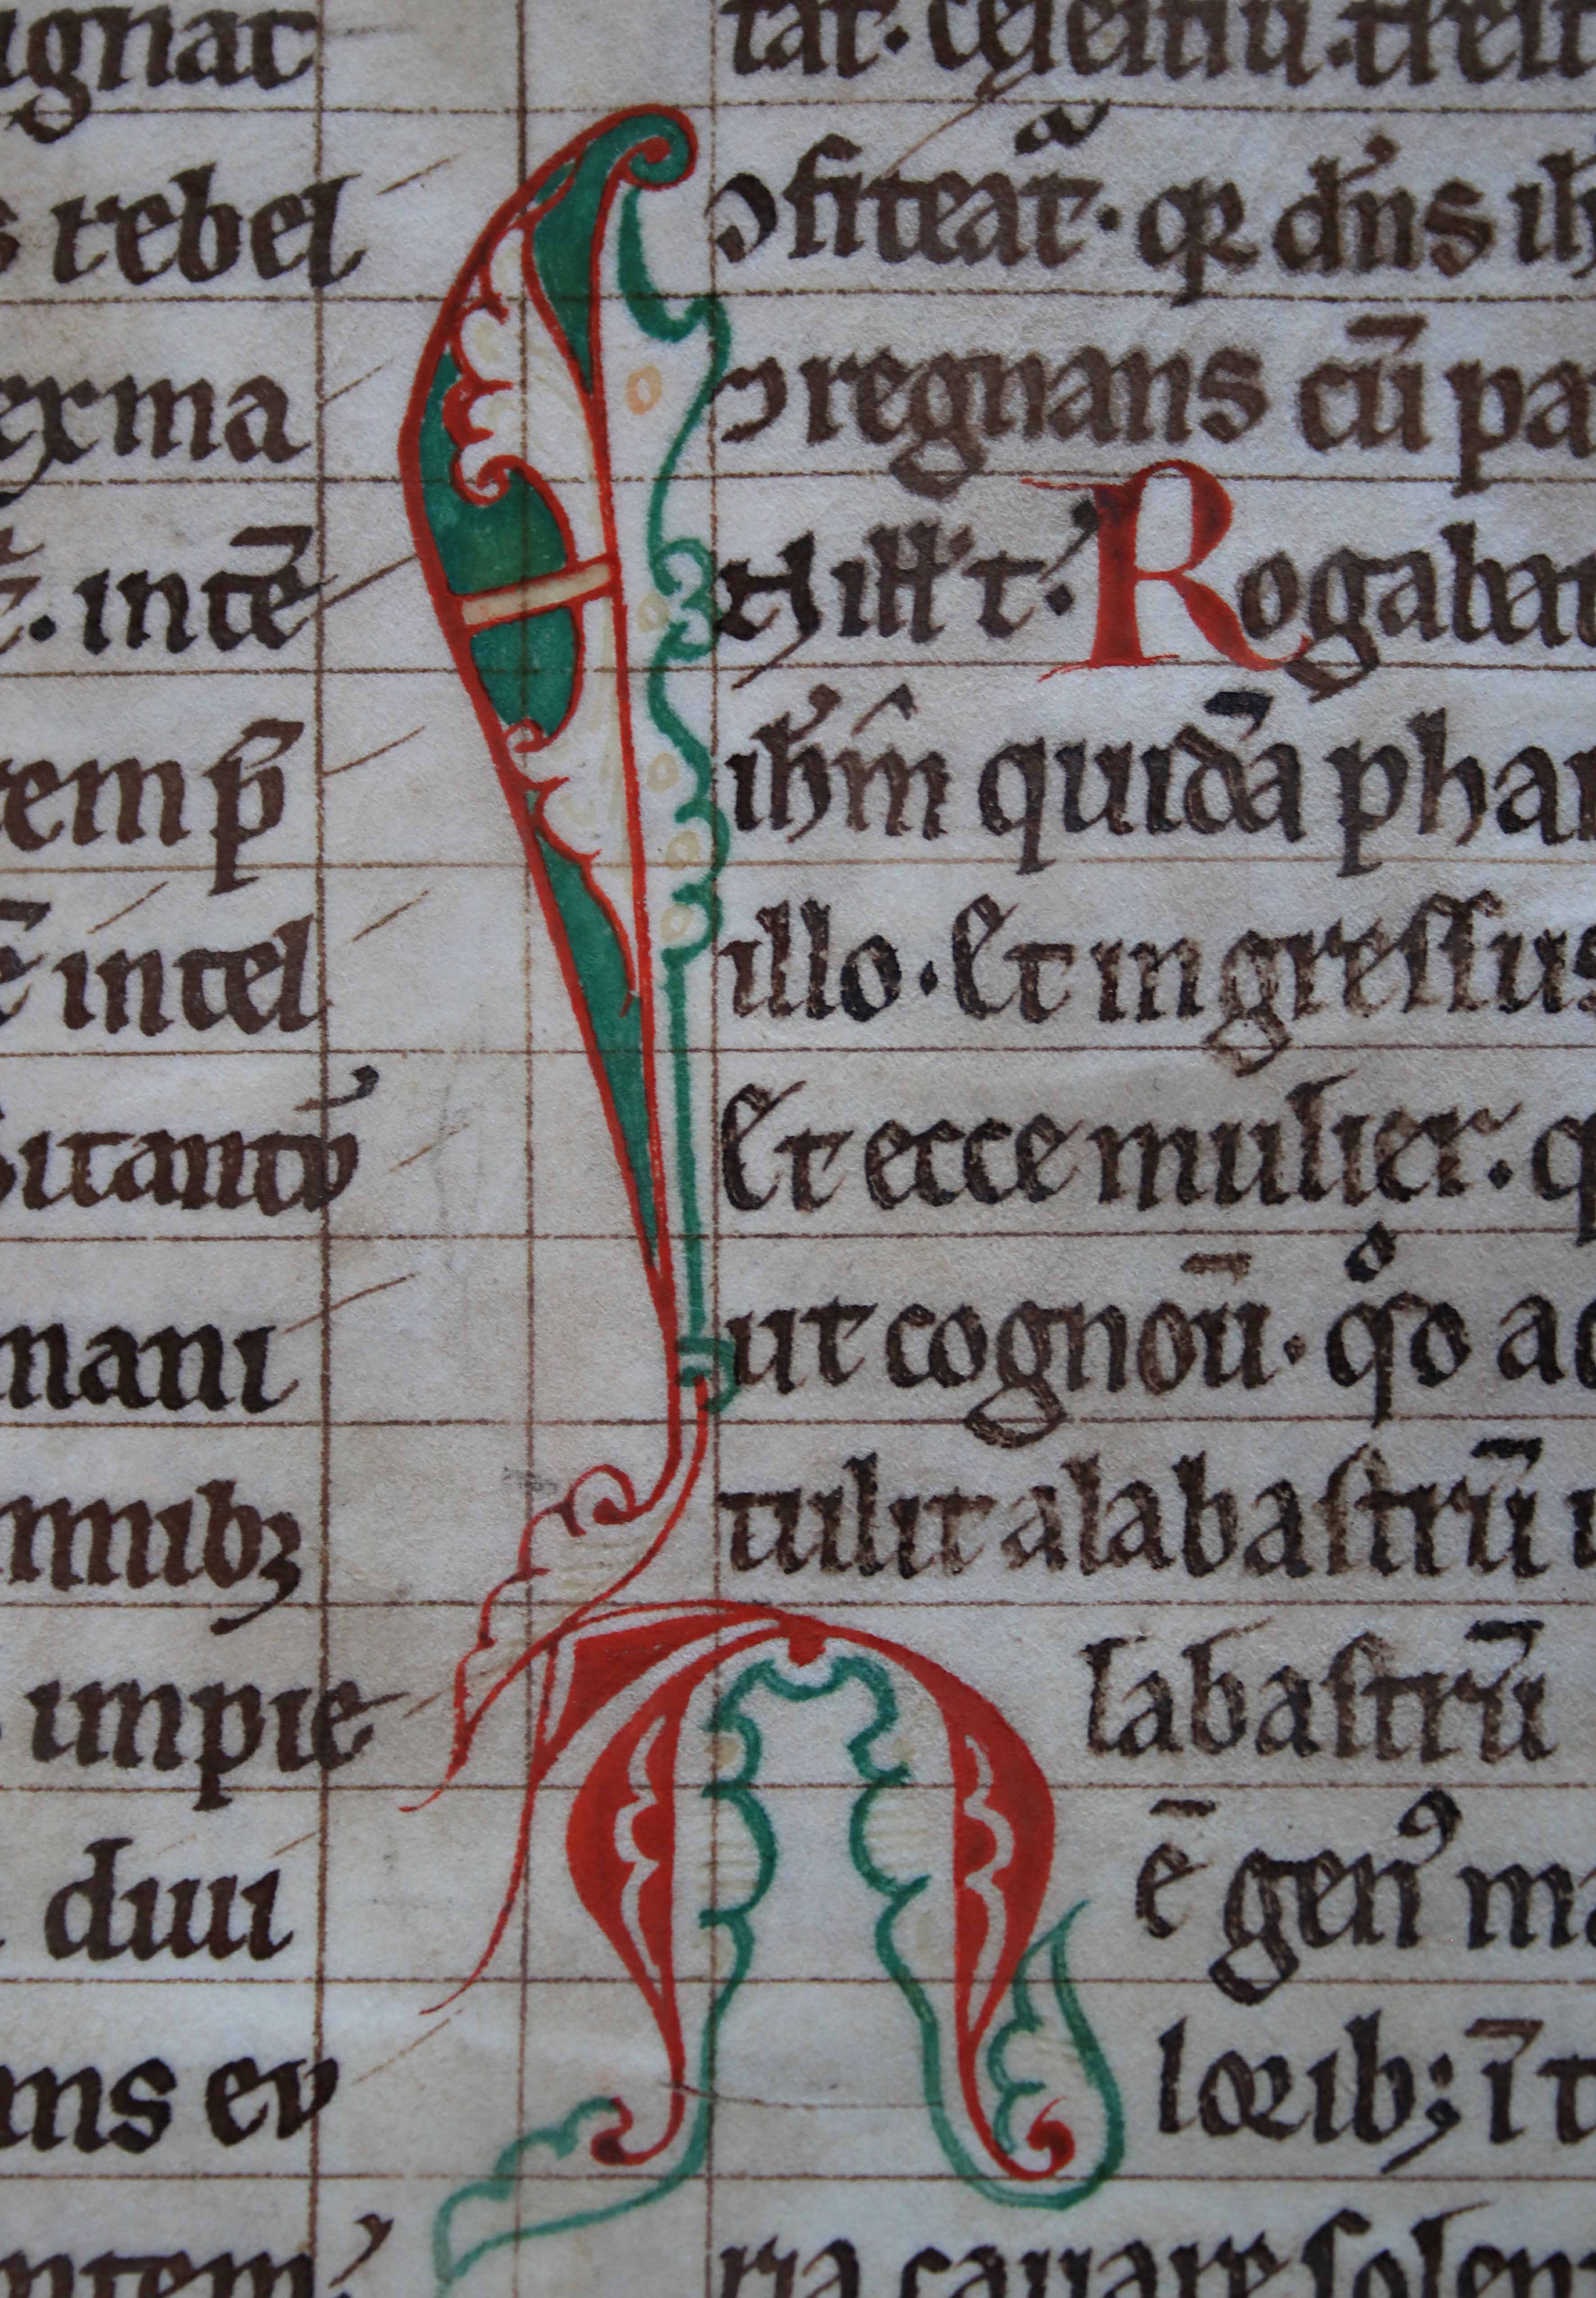 ignat
s rebel
exma
inte̅
temp̅
e̅ intel
sitantꝰ
mani
mnibꝫ
impie
diui
ans eu
ntem
tat· celestiu·
ↄfiteat̅· qꝛ dn̅s ih
ↄregnans cu̅ pa
Rogabat
ih̅m quida̅ phar
illo· Et ingressus
Et ecce mulier· q
ut cognou̅· qͦ ac
tulit alabastru̅ u
A labastru̅
e̅ genꝰ ma
loꝛib; i̅ t
ria cauare solent